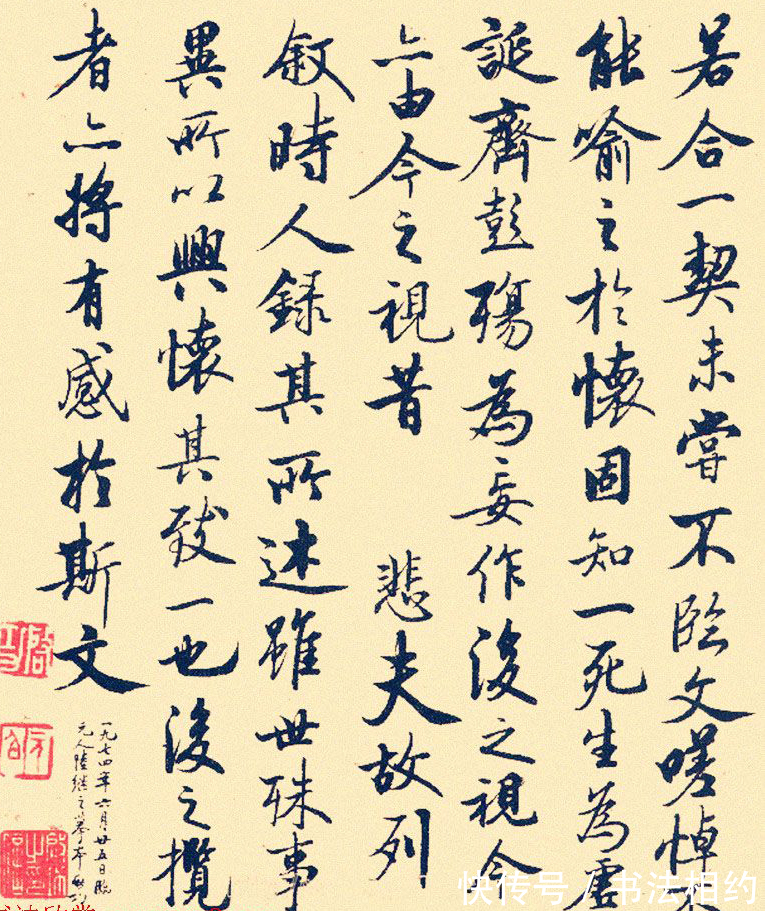 若合一契未嘗不臨文嗟悼不
能喻之於懷固知一死生為虛
誕齊彭殤為妄作後之視今
亦由今之視昔 悲夫故列
叙時人錄其所述雖世殊事
異所以興懷其致一也後之攬
者亦將有感於斯文
一九七四年六月廿五日臨
元人陸繼之摹本 啟功
快传号 / 书法相约